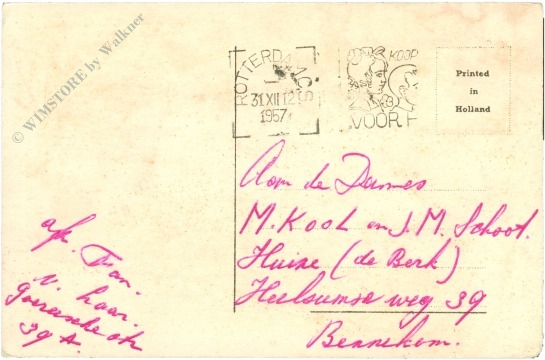 © WIMSTORE by Walkner
ROTTERDAM C.S
31 XII 12
1957
KOOP
VOOR
Printed
in
Holland
Aan de Dames
M. Kool en J. M. Schoot.
Huize (de Berk)
Heelsumse weg 39
Bennekom.
afz. Fam.
v. Haar.
39 A.